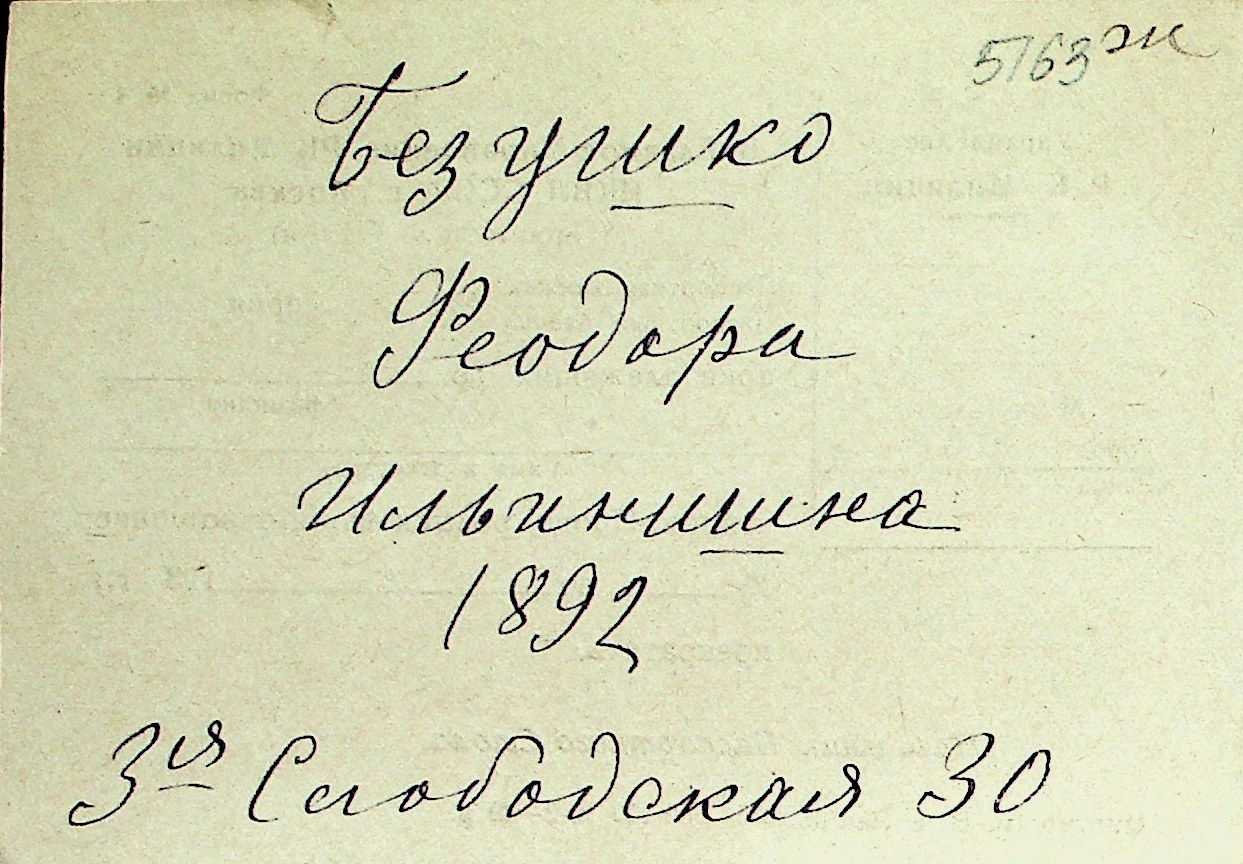 5163 ж
Безушко
Феодора
Ильинишна
1892
3ья Слободская 30